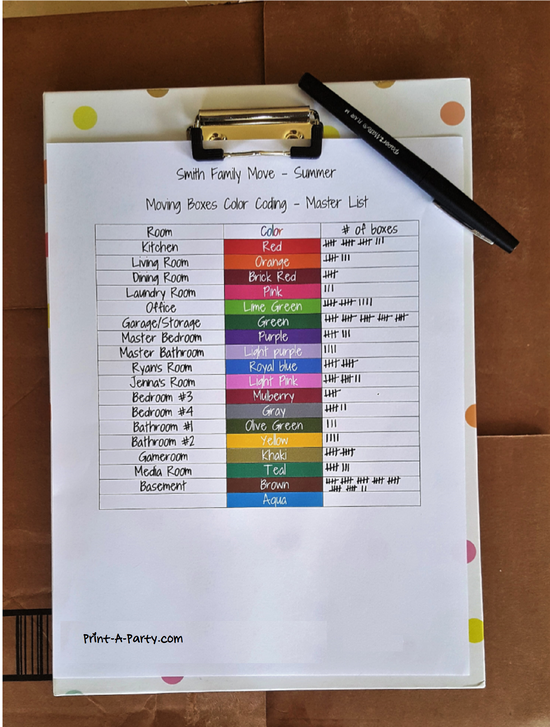 Smith Family Move - Summer
Moving Boxes Color Coding - Master List
Room Color # of boxes
Kitchen Red
Living Room Orange
Dining Room Brick Red
Laundry Room Pink
Office Lime Green
Garage/Storage Green
Master Bedroom Purple
Master Bathroom Light purple
Ryan's Room Royal blue
Jenna's Room Light Pink
Bedroom #3 Mulberry
Bedroom #4 Gray
Bathroom #1 Olive Green
Bathroom #2 Yellow
Gameroom Khaki
Media Room Teal
Basement Brown
Aqua
Print-A-Party.com